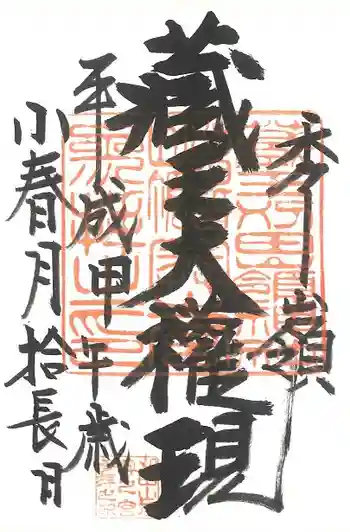 秀嶺
蔵王大権現
平成甲午歳
小春月拾長日